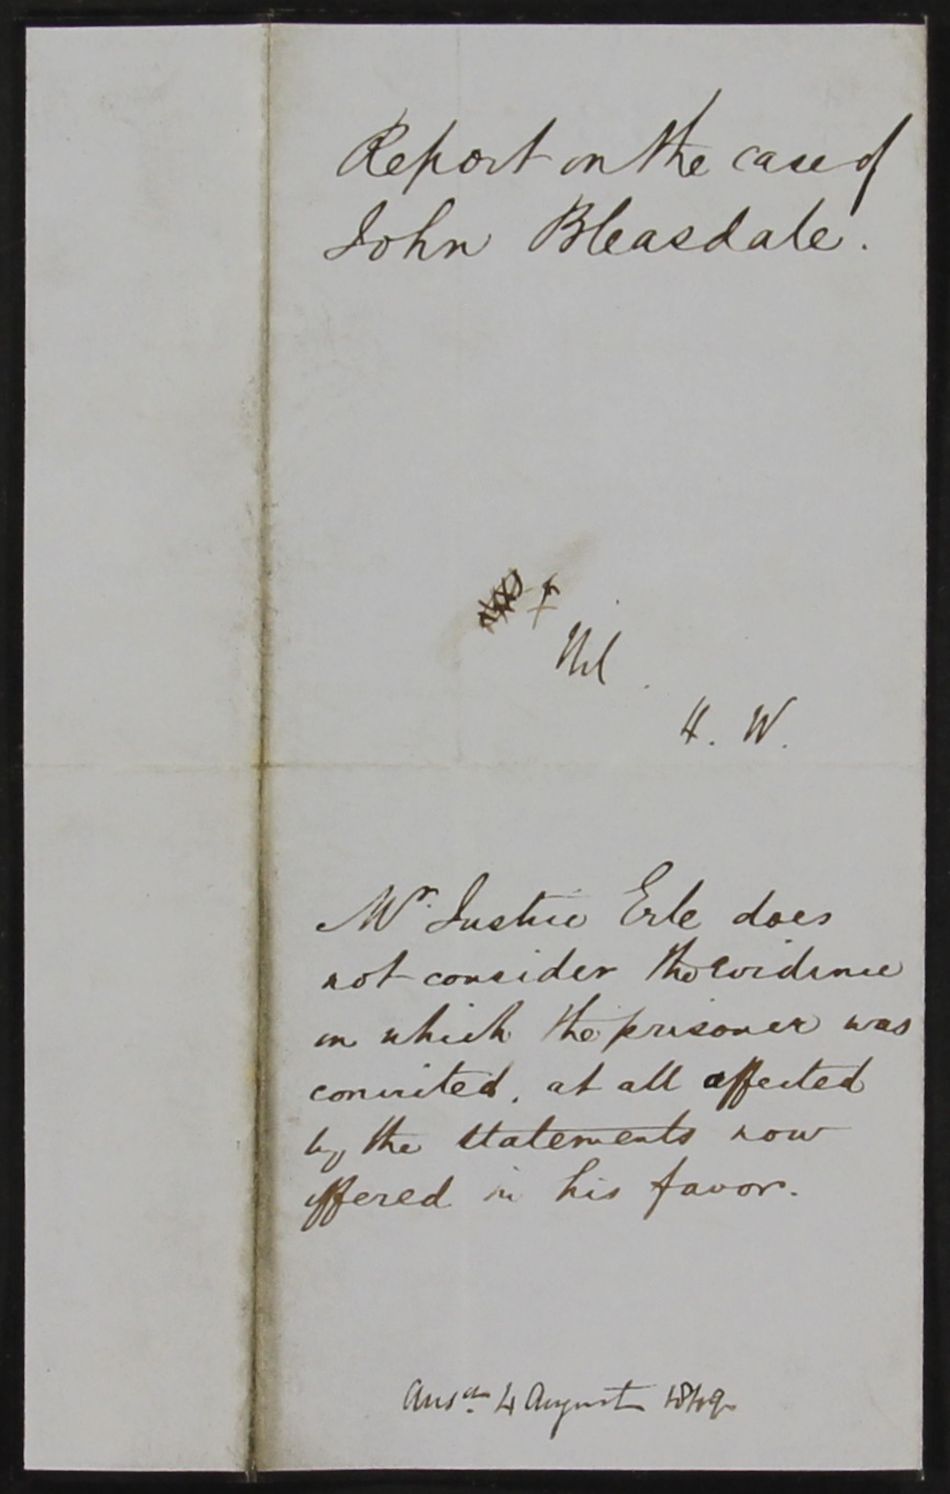 Report on the case of
John Bleasdale.
Nil.
H. W.
Mr. Justice Erle does
not consider the evidence
on which the prisoner was
convicted, at all affected
by the statements now
offered in his favor.
Ansd. 4 August 1849